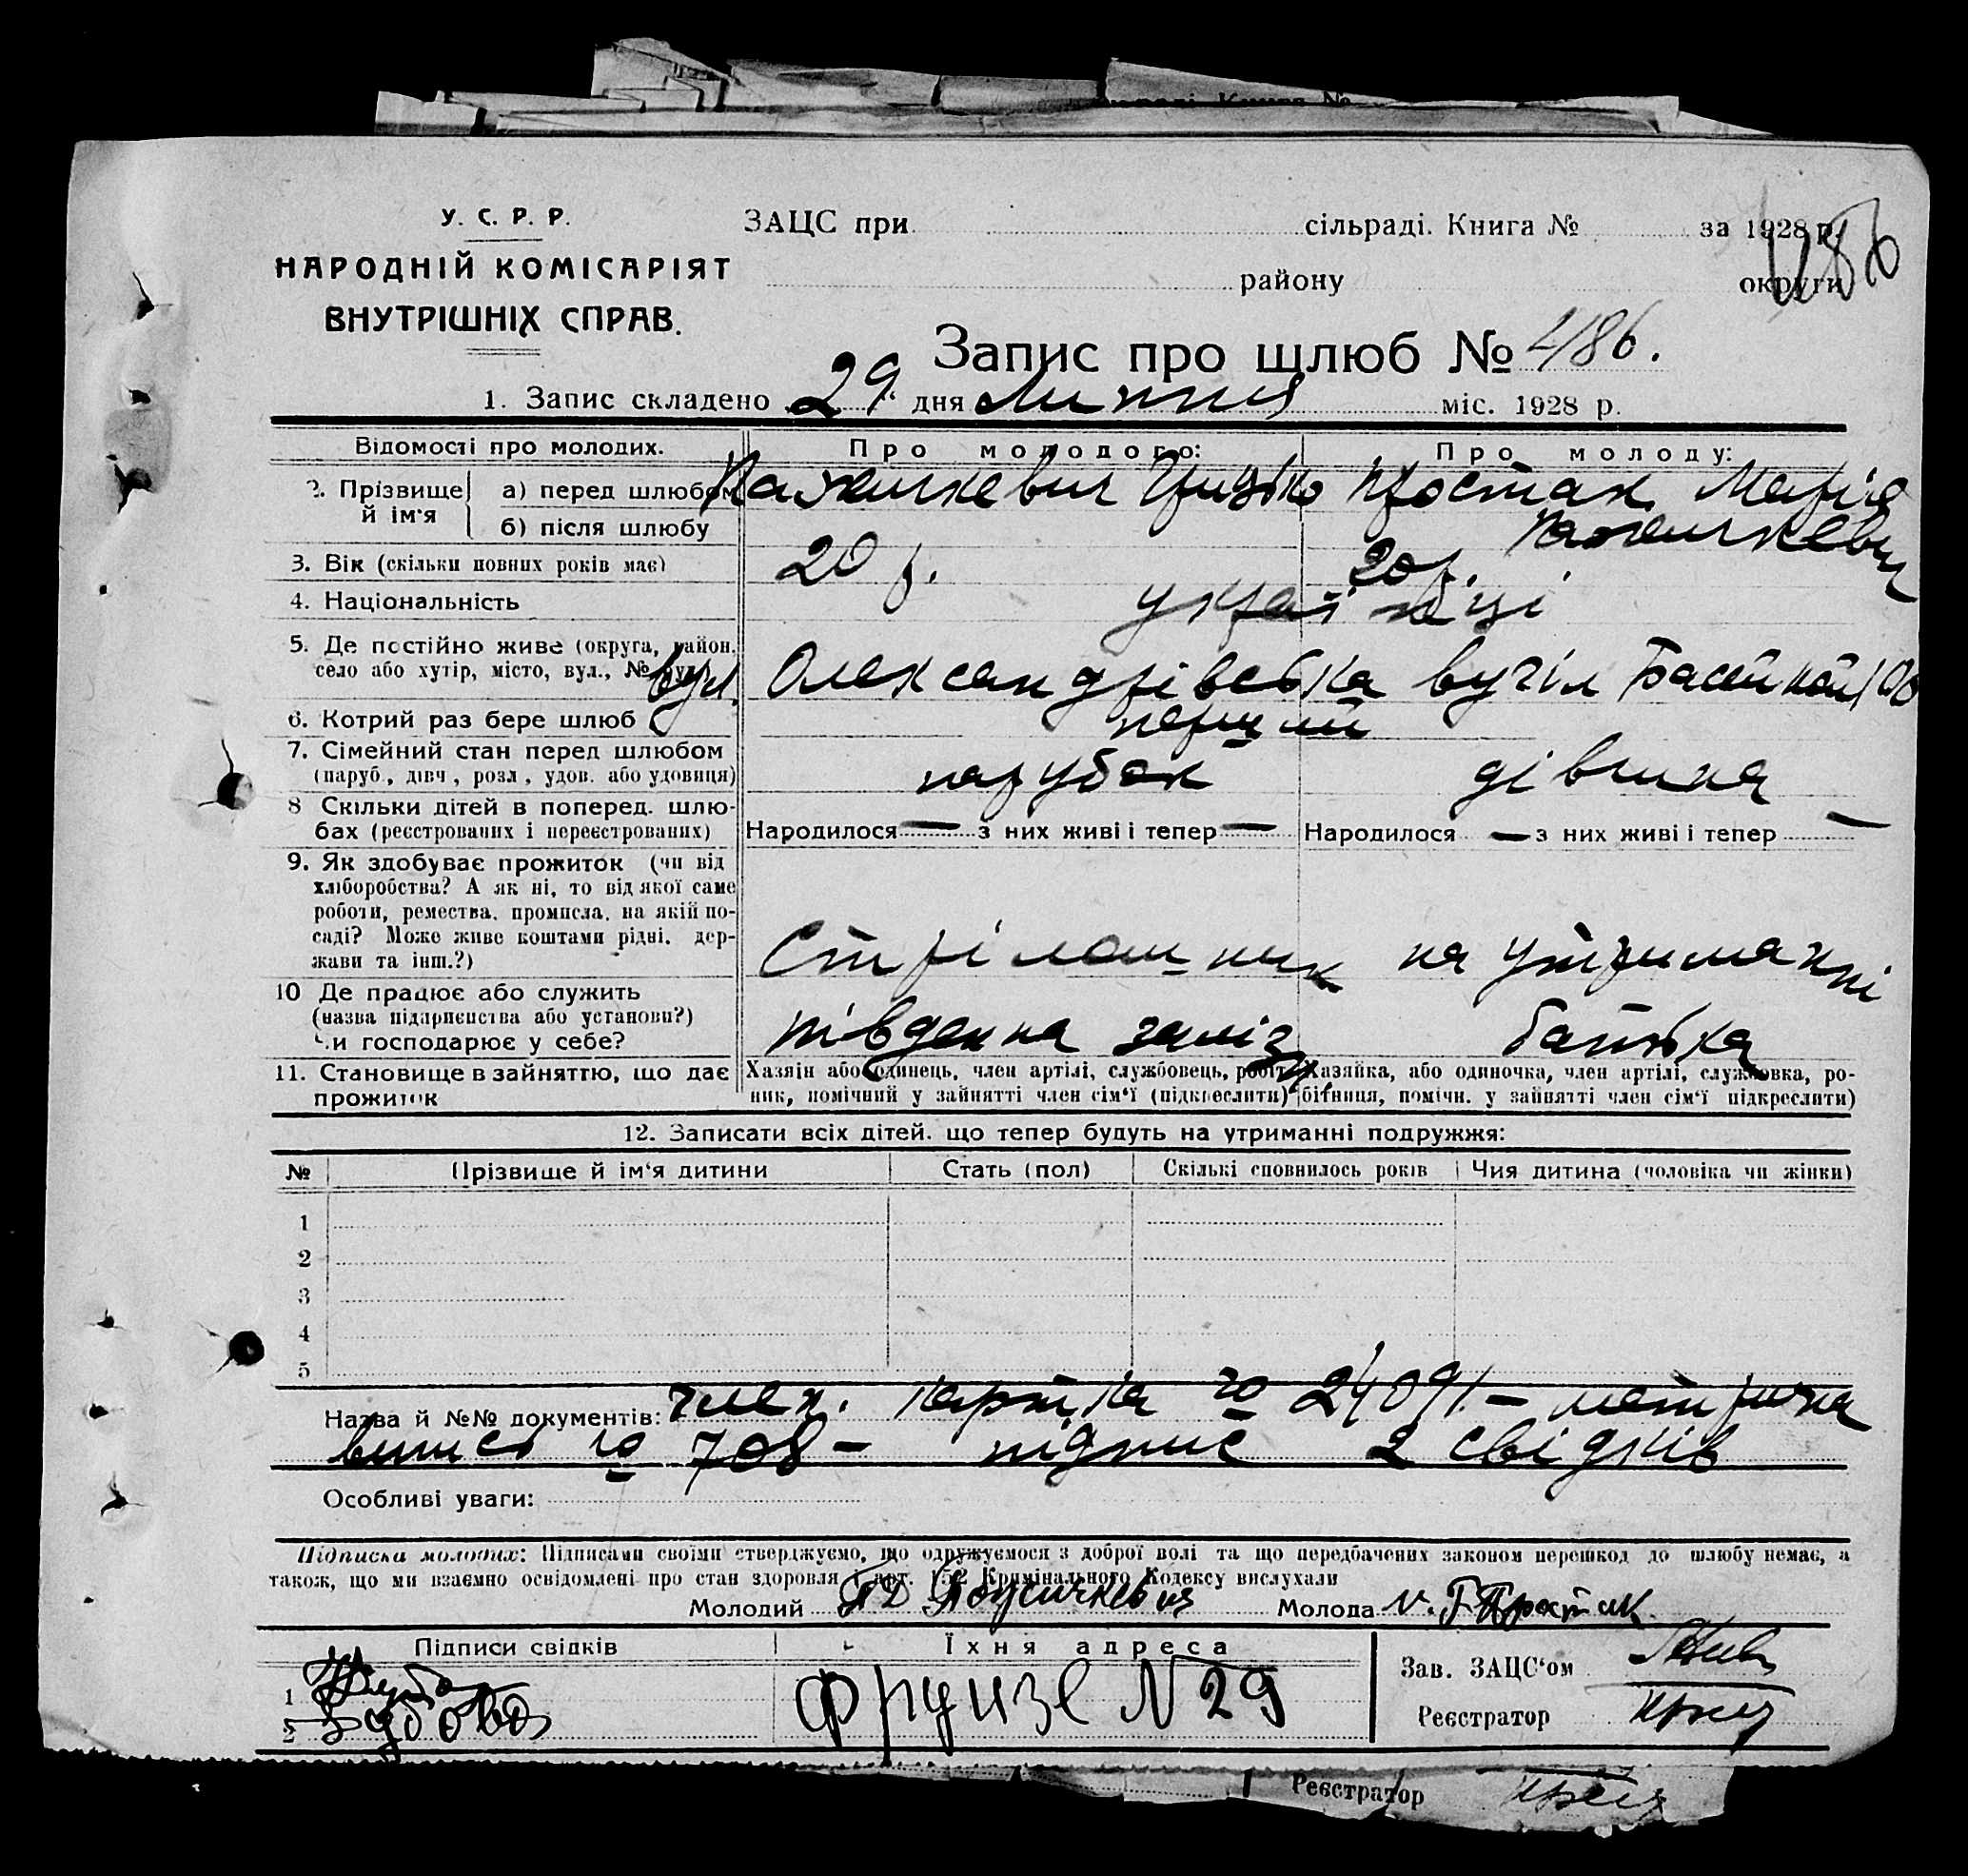 У. С. Р. Р.
НАРОДНІЙ КОМІСАРІЯТ
ВНУТРІШНІХ СПРАВ.
ЗАЦС при сільраді. Книга № за 1928 р.
району округи
486
Запис про шлюб № 486.
1. Запис складено 29 дня Липня міс. 1928 р.
Відомості про молодих. Про молодого: Про молоду:
2. Прізвище й ім'я а) перед шлюбом Простак Марія
б) після шлюбу
3. Вік (скільки повних років має) 20 р. 20 р.
4. Національність українці
5. Де постійно живе (округа, район, село або хутір, місто, вул., № вул.
вул. Олександрівська
6. Котрий раз бере шлюб перший
7. Сімейний стан перед шлюбом
(паруб., дівч., розл., удов. або удовиця) парубок дівчина
8 Скільки дітей в поперед. шлю-
бах (реєстрованих і нереєстрованих) Народилося — з них живі і тепер — Народилося — з них живі і тепер —
9. Як здобуває прожиток (чи від
хліборобства? А як ні, то від якої саме
роботи, ремества, промисла, на якій по-
саді? Може живе коштами рідні, дер-
жави та інш.?) на утриманні
10 Де працює або служить
(назва підприємства або установи?)
Чи господарює у себе? південна заліз батька
11. Становище в зайняттю, що дає прожиток
Хазяїн або одинець, член артілі, службовець, робіт-
ник, помічний у зайнятті член сім'ї (підкреслити)
Хазяйка, або одиночка, член артілі, службовка, ро-
бітниця, помічн. у зайнятті член сім'ї підкреслити)
12. Записати всіх дітей. що тепер будуть на утриманні подружжя:
№ Прізвище й ім'я дитини Стать (пол) Скількі сповнилось років Чия дитина (чоловіка чи жінки)
1
2
3
4
5
Назва й №№ документів: член. картка № 24091 – метрична
випись № 708 – підпис 2 свідків
Особливі уваги:
Підписка молодих: Підписами своїми стверджуємо, що одружуємося з доброї волі та що передбачених законом перешкод до шлюбу немає, а
також, що ми взаємно освідомлені про стан здоровля і арт. 152 Кримінального Кодексу вислухали
Молодий Молода М. Г Простак
Підписи свідків Їхня адреса
1
2 Зубова
Фрунзе N 29
Зав. ЗАЦС'ом
Реєстратор
Реєстратор